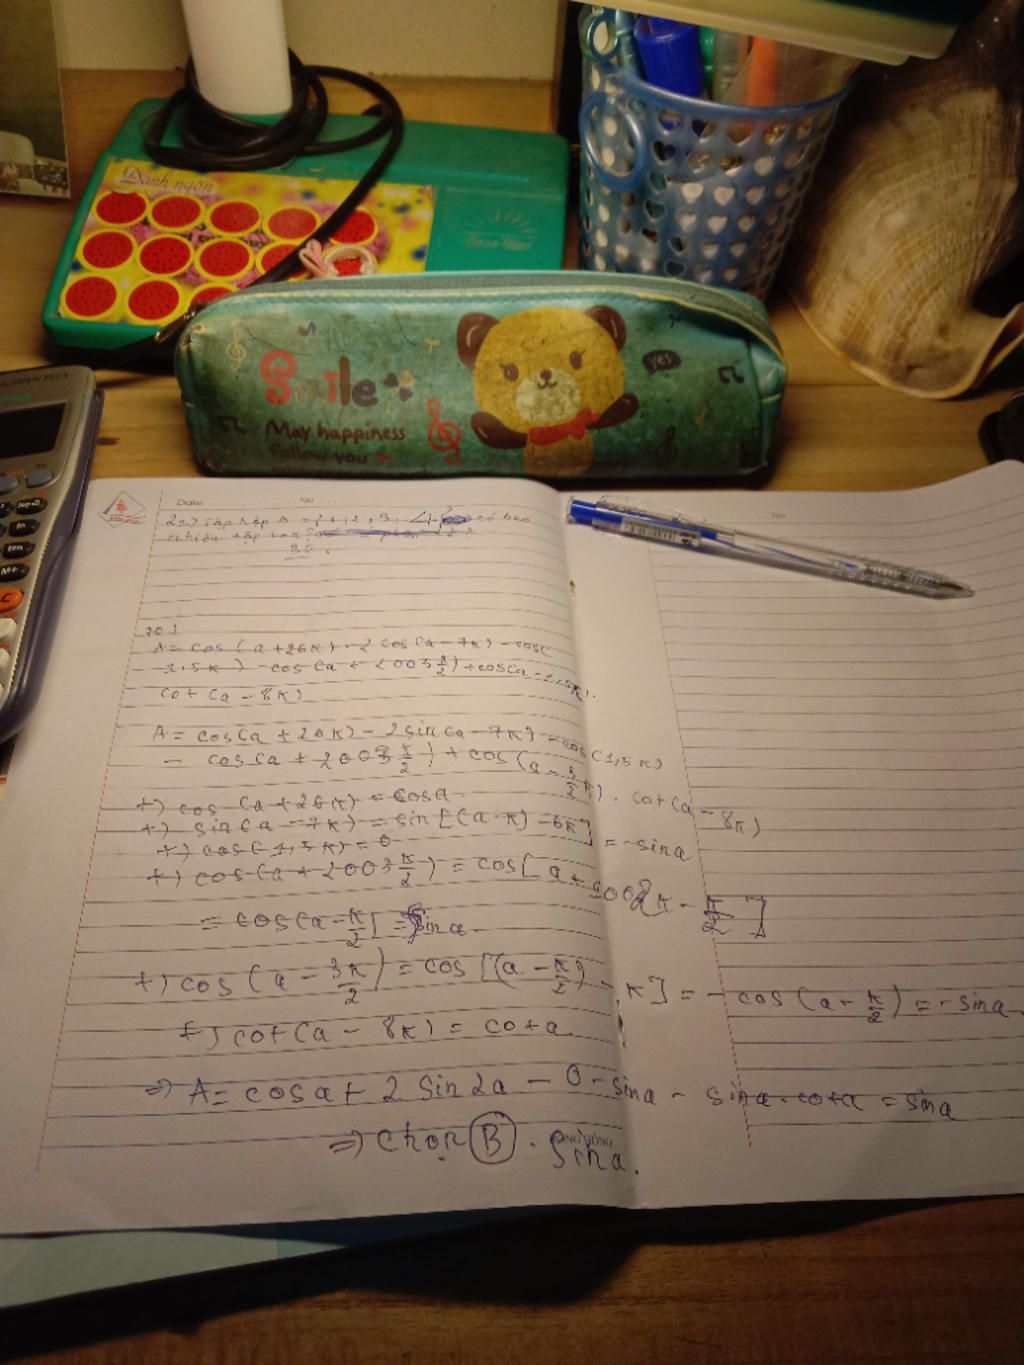 Danh ngôn
Smile
yes
May happiness
follow you
Date
No
No
A = cos(a + 26π) - 2 cos(a - 7π) - cos(
1,5π) - cos(a + 2003 π/2) + cos(a - 1,5π).
cot(a - 8π)
A = cos(a + 26π) - 2 sin(a - 7π) - cos(1,5π)
- cos(a + 2003 π/2) + cos(a - 3/2 π). cot(a - 8π)
+) cos(a + 26π) = cosa
+) sin(a - 7π) = sin[(a - π) - 6π] = -sina
+) cos(1,5π) = 0
+) cos(a + 2003 π/2) = cos[a + 1002π - π/2]
= cos(a - π/2) = sina
+) cos(a - 3π/2) = cos[(a - π/2) - π] = -cos(a - π/2) = -sina
+) cot(a - 8π) = cota
=> A = cosa + 2 sin2a - 0 - sina - sina.cota = sina
=> chọn B. sina.